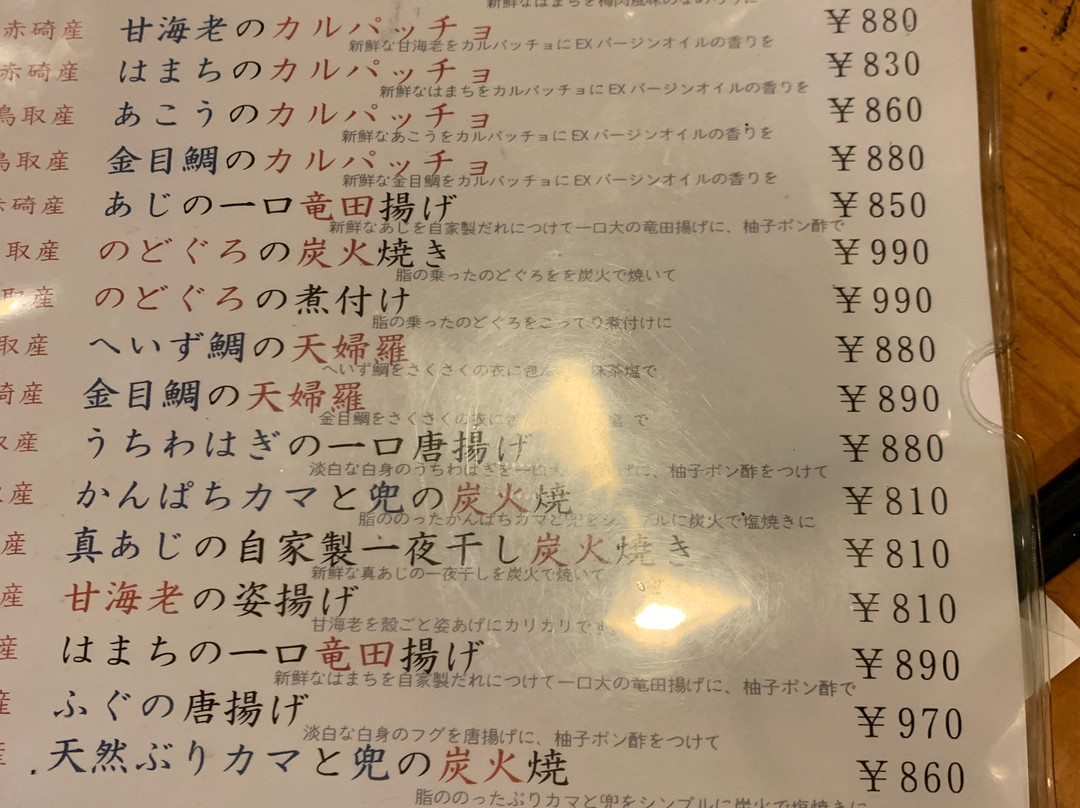 新鮮なはまちを梅肉風味の
赤碕産 甘海老のカルパッチョ ￥880
新鮮な甘海老をカルパッチョにEXバージンオイルの香りを
赤碕産 はまちのカルパッチョ ￥830
新鮮なはまちをカルパッチョにEXバージンオイルの香りを
鳥取産 あこうのカルパッチョ ￥860
新鮮なあこうをカルパッチョにEXバージンオイルの香りを
鳥取産 金目鯛のカルパッチョ ￥880
新鮮な金目鯛をカルパッチョにEXバージンオイルの香りを
赤碕産 あじの一口竜田揚げ ￥850
新鮮なあじを自家製だれにつけて一口大の竜田揚げに、柚子ポン酢で
取産 のどぐろの炭火焼き ￥990
脂の乗ったのどぐろをを炭火で焼いて
取産 のどぐろの煮付け ￥990
脂の乗ったのどぐろをこってり煮付けに
取産 へいず鯛の天婦羅 ￥880
へいず鯛をさくさくの衣に包ん 抹茶塩で
碕産 金目鯛の天婦羅 ￥890
金目鯛をさくさくの衣に で
取産 うちわはぎの一口唐揚げ ￥880
淡白な白身のうちわはぎを一口 げに、柚子ポン酢をつけて
産 かんぱちカマと兜の炭火焼 ￥810
脂ののったかんぱちカマと兜をシンプルに炭火で塩焼きに
産 真あじの自家製一夜干し炭火焼き ￥810
新鮮な真あじの一夜干しを炭火で焼いて
産 甘海老の姿揚げ ￥810
甘海老を殻ごと姿あげにカリカリで
産 はまちの一口竜田揚げ ￥890
新鮮なはまちを自家製だれにつけて一口大の竜田揚げに、柚子ポン酢で
産 ふぐの唐揚げ ￥970
淡白な白身のフグを唐揚げに、柚子ポン酢をつけて
天然ぶりカマと兜の炭火焼 ￥860
脂ののったぶりカマと兜をシンプルに炭火で塩焼きに